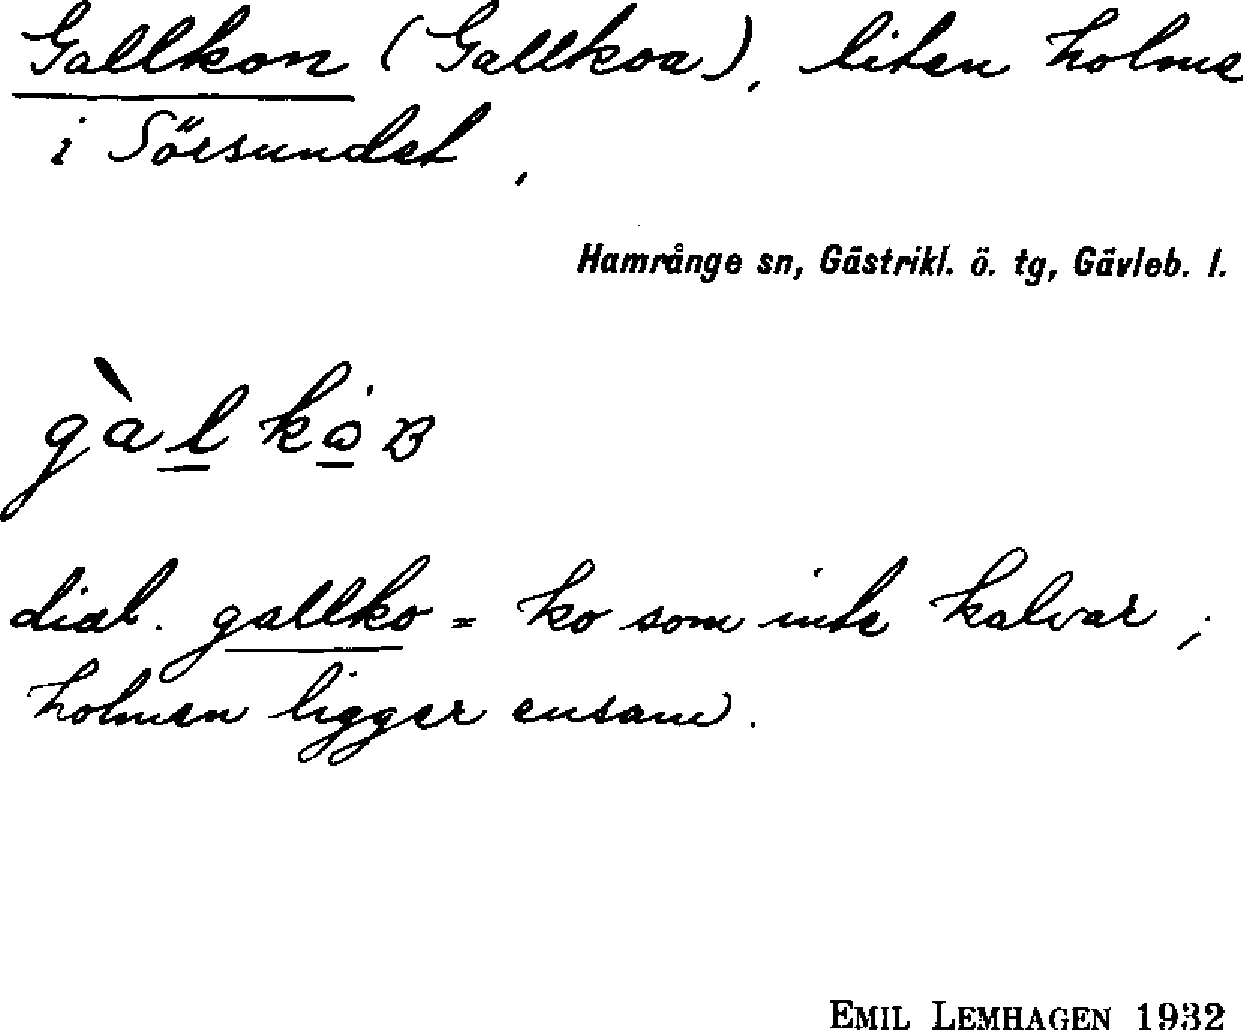 Gallkon (Gallkoa), liten holme
i Sörsundet,
Hamrånge sn, Gästrikl. ö. tg, Gävleb. l.
dial. gallko = ko som inte kalvar ;
holmen ligger ensam.
EMIL LEMHAGEN 1932